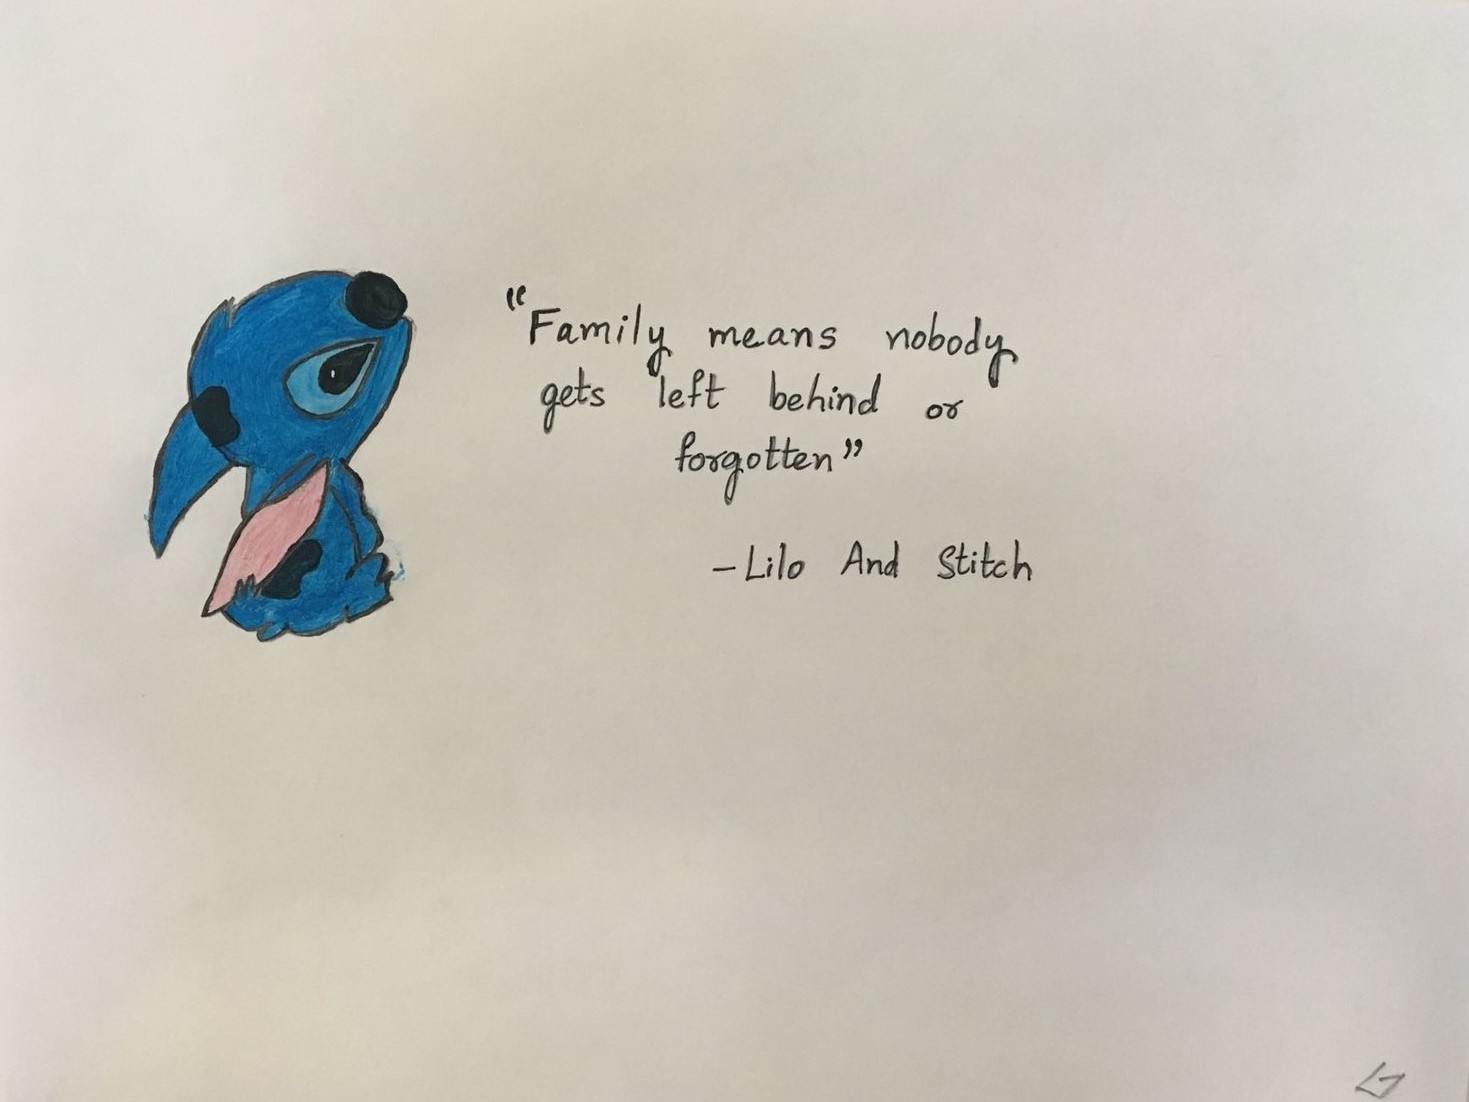 "Family means nobody
gets left behind or
forgotten"
-Lilo And Stitch